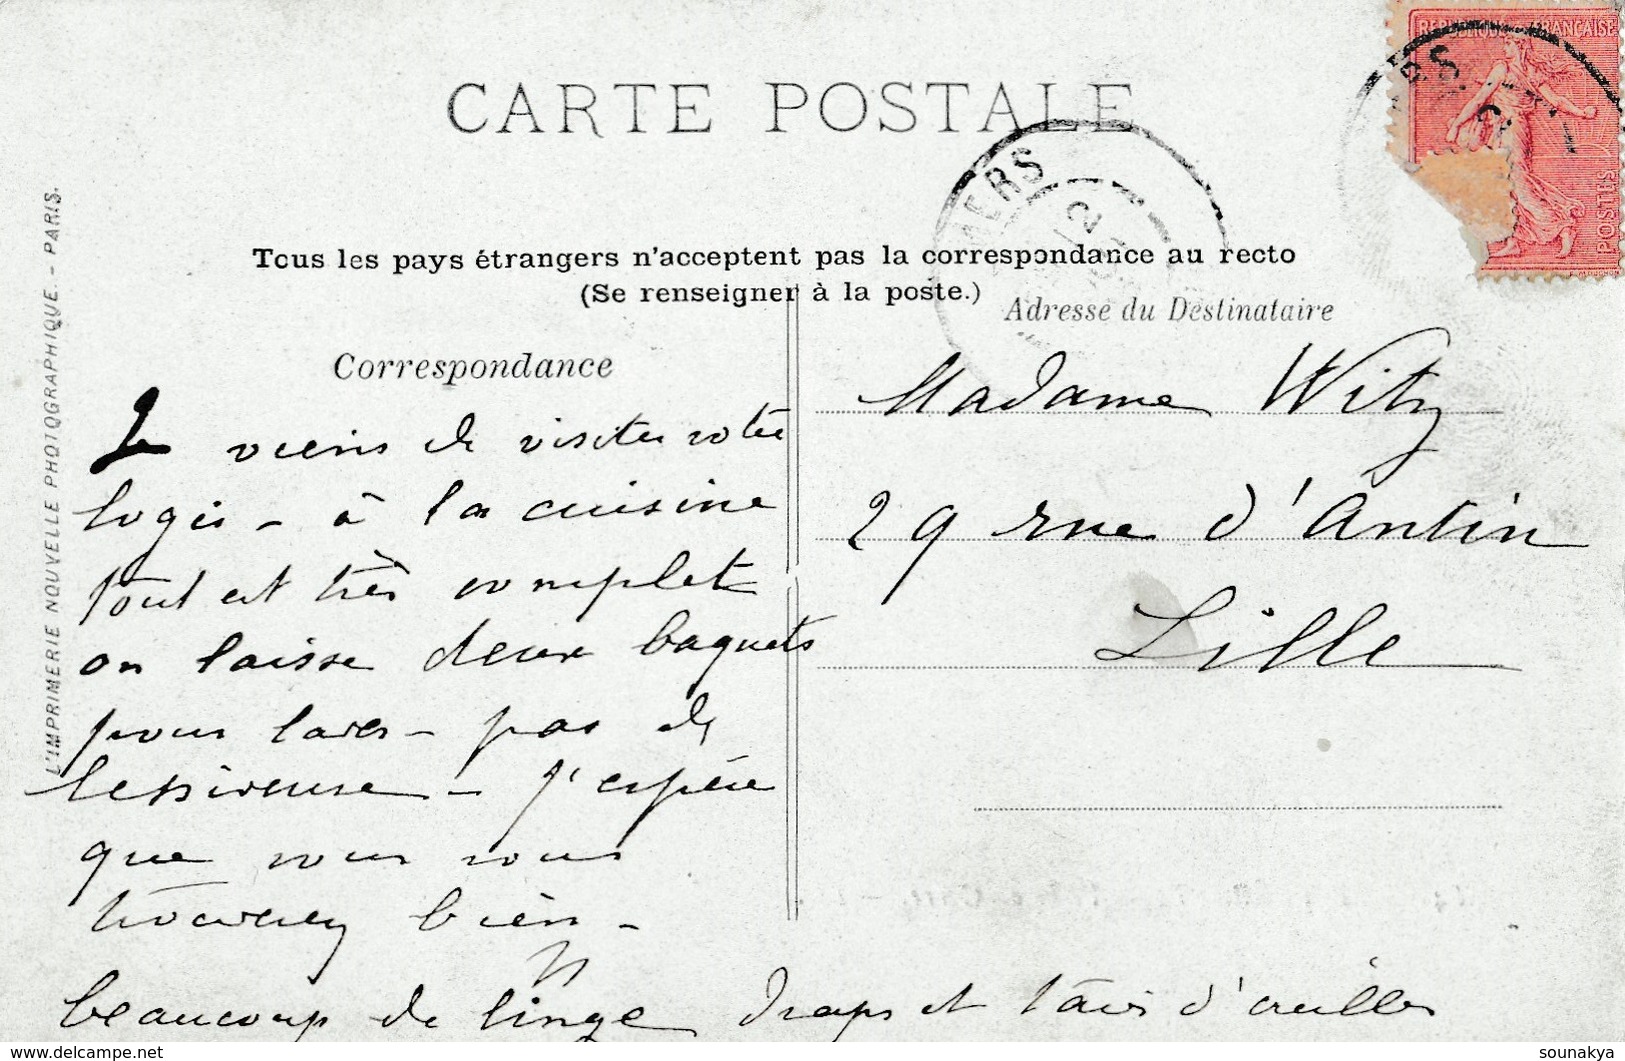 CARTE POSTALE
REPUBLIQUE FRANÇAISE
POSTES
MERS
Tous les pays étrangers n'acceptent pas la correspondance au recto
(Se renseigner à la poste.)
Adresse du Destinataire
Correspondance
L'IMPRIMERIE NOUVELLE PHOTOGRAPHIQUE - PARIS.
Je viens de visiter votre
logis - à la cuisine
tout est très complet
on laisse deux baquets
pour laver - pas de
lessiveuse - j'espère
que vous vous
trouverez bien -
beaucoup de linge draps et taies d'oreilles
Madame Witz
29 rue d'Antin
Lille
© https://www.delcampe.net
sounakya